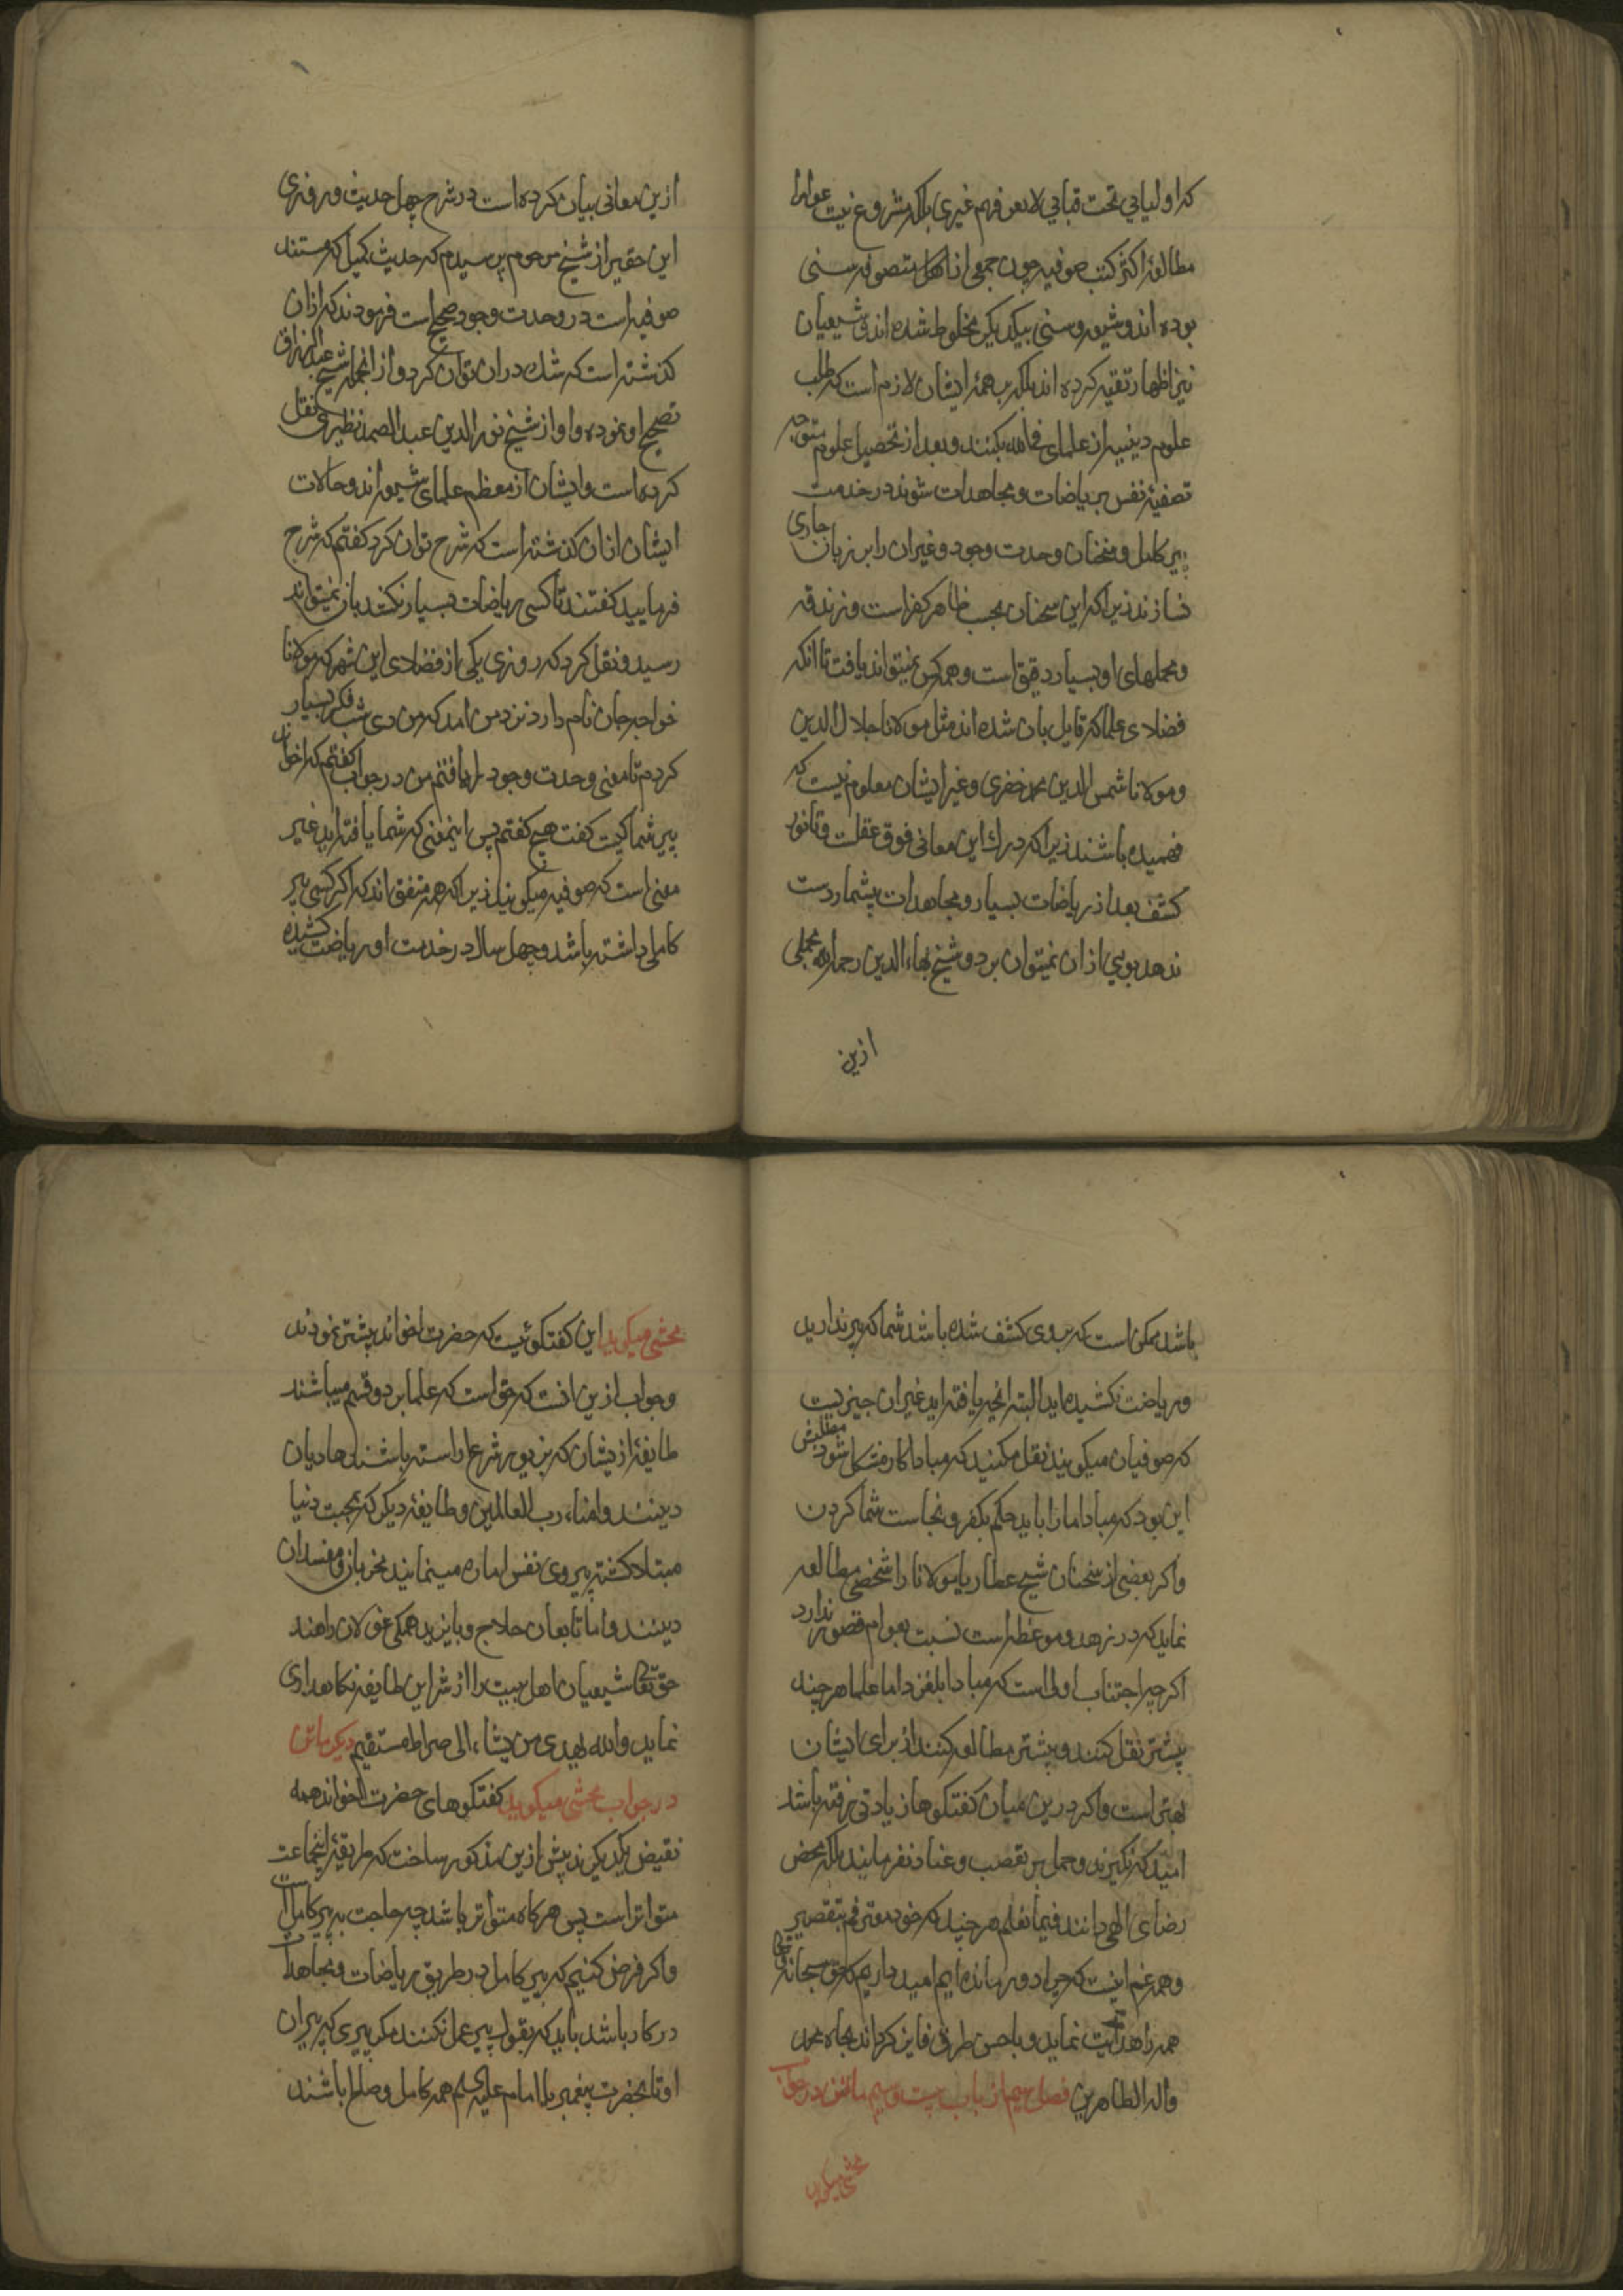 که اولیائی تحت قبابی لا یعرفهم غیری بلکه مشروع نیست عوام را
مطالعه اکثر کتب صوفیه چون جمعی از اهل تصوف سنی
بوده اند و شیعه و سنی بیکدیگر مخلوط شده اند و شیعیان
نیز اظهار تقیه کرده اند بلکه بر همه ایشان لازم است که طلب
علوم دینیه از علمای بکنند و بعد از تحصیل علوم متوجه
تصفیه نفس بریاضات و مجاهدات شوند در خدمت
پیر کامل و سخنان وحدت وجود و غیر آن را بر زبان جاری
نسازند زیرا که این سخنان بحسب ظاهر کفر است و زندقه
و محملهای او بسیار دقیق است و همه کس نمیتواند یافت تا آنکه
فضلای علما که قایل بآن شده اند مثل مولانا جلال الدین
و مولانا شمس الدین محمد خفری و غیر ایشان معلوم نیست که
فهمیده باشند زیرا که درک این معانی فوق عقلست و تا نور
کشف بعد از ریاضات بسیار و مجاهدات بیشمار دست
ندهد بویی از آن نمیتوان برد و شیخ بهاء الدین رحمه الله مجملی
ازین
ازین معانی بیان کرده است در شرح چهل حدیث و روزی
این حقیر از شیخ مرحوم پرسیدم که حدیث کمیل که مستند
صوفیه است در وحدت وجود صحیح است فرمودند که از آن
گذشته است که شک در آن توان کرد و از آنجمله شیخ عبد الرزاق
تصحیح او نموده و او از شیخ نور الدین عبد الصمد نظیری نقل
کرده است و ایشان از معظم علمای شیعه اند و حالات
ایشان از آن گذشته است که شرح توان کرد گفتم که شرح
فرمایید گفتند تا کسی ریاضات بسیار نکشد بآن نمیتواند
رسید و نقل کرد که روزی یکی از فضلای این شهر که مولانا
خواجه جان نام دارد نزد من آمد که من دی شب فکر بسیار
کردم تا معنی وحدت وجود را یافتم من در جواب گفتم که اخوند
پیر شما کیست گفت هیچ گفتم پس اینمعنی که شما یافته اید غیر
معنی است که صوفیه میگویند زیرا که همه متفق اند که اگر کسی پیر
کامل داشته باشد و چهل سال در خدمت او ریاضت کشیده
باشد ممکن است که بروی کشف شده باشد شما که پیر ندارید
و ریاضت نکشیده اید البته آنچه یافته اید غیر آن چیزیست
که صوفیان میگویند نقل مکنید که مبادا کار مشکل شود مطلبش
این بود که مبادا ما را باید حکم بکفر و نجاست شما کردن
و اگر بعضی از سخنان شیخ عطار یا مولانا را شخصی مطالعه
نماید که در زهد و موعظه است نسبت بعوام قصور ندارد
اگر چه اجتناب اولی است که مبادا بلغزد اما علما هر چند
بیشتر نقل کنند و بیشتر مطالعه کنند از برای ایشان
بهتر است و اگر درین میان گفتگوها زیادتی رفته باشد
امید که نگیرند و حمل بر تعصب و عناد نفرمایند بلکه محض
رضای الهی دانند فیما نعلم هر چند که خود معترفم بتقصیر
و همه غم اینست که چرا دور مانده ایم امید داریم که حق سبحانه و تعالی
همه را هدایت نماید و باحسن طرق فایز گرداند بجاه محمد
و آله الطاهرین فصل سیم از باب بیست و سیم ماتن در جواب
محشی میگوید
محشی میگوید این گفتگوئیست که حضرت اخواند پیشتر نمودند
و جواب ازین آنست که حق است که علما بر دو قسم میباشند
طایفه از ایشان که بزیور شرع آراسته باشند هادیان
دینند و امناء رب العالمین و طایفه دیگر که بمحبت دنیا
مبتلا گشته پیروی نفس اماره مینمایند مخربان و مفسدان
دینند و اما تابعان حلاج و بایزید همگی غولان راهند
حق تعالی شیعیان اهل بیت را از شر این طایفه نگاهداری
نماید و الله یهدی من یشاء الی صراط مستقیم دیگر ماتن
در جواب محشی میگوید گفتگوهای حضرت اخواند همه
نقیض یکدیگرند پیش ازین مذکور ساخت که طریقه اینجماعت
متواتر است پس هرگاه متواتر باشد چه حاجت به پیر کامل است
و اگر فرض کنیم که پیر کامل در طریق ریاضات و مجاهدات
در کار باشد باید که بقول پیر عمل نکنند مگر پیری که پیران
او تا بحضرت پیغمبر یا امام علیه السلم همه کامل و صلحا باشند